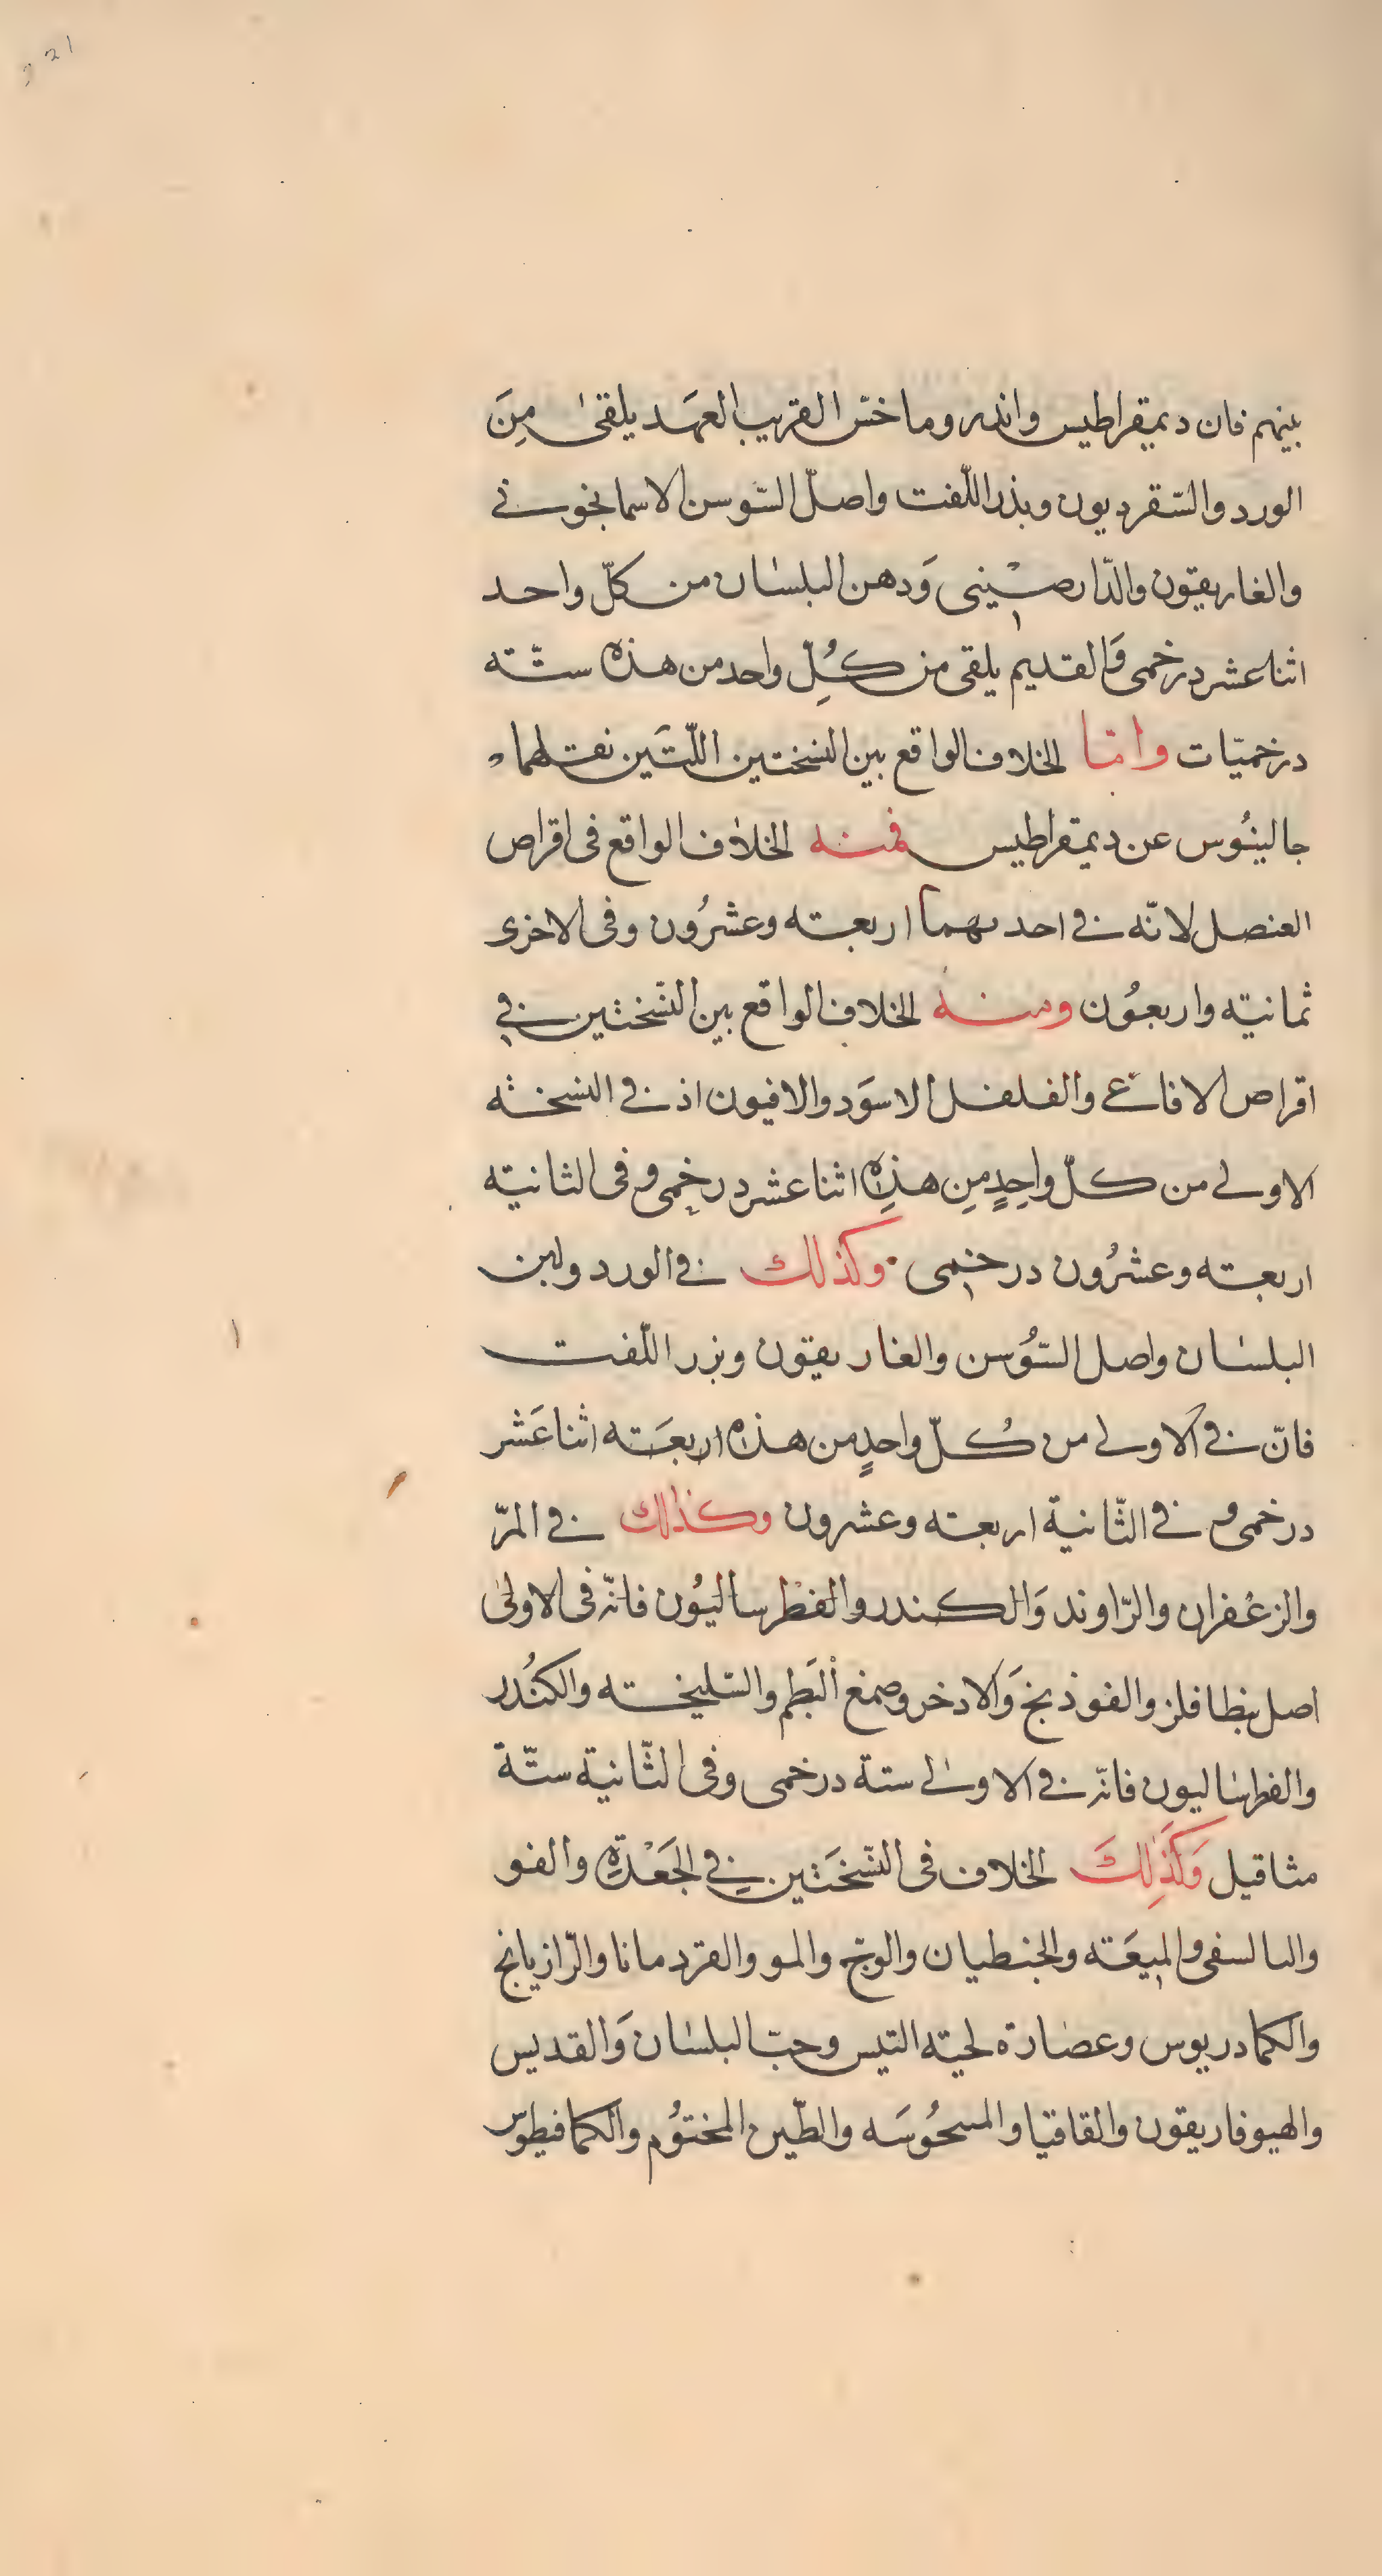 221
بينهم فان ديميقراطيس واندروماخس القريب العهَد يلقىٰ مِنَ
الورد والسّقرديون وبذر اللّفت واصلّ السّوسن الاسمانجونے
والغاريقون والدّارصيْني وَدهن البلسٰان من كلّ واحد
اثناعشر درخمى وَالقديم يلقى من كُلِّ واحد من هذه ستّه
درخميّات وامّا الخلاف الواقع بين النسختين اللّتَين نقلهما
جالينُوس عن ديمقراطيس فمنه الخلاٰف الواقع فى اقراص
العنصل لانّه فے احديهما اربعته وعشرُون وفى الاخرى
ثمانيته واربعُون ومنه الخلاف الواقع بين النّسختين فے
اقراص الافاعے والفلفل الاسوَد والافيون اذ فے النسخته
الاولے من كلّ واحِدٍ مِن هذِه اثنا عشر درخمى وفى الثانيته
اربعته وعشرُون درخمى وكذلك فے الورد ولبن
البلسٰان واصل السّوُسن والغاريقون وبزر اللّفت
فانّ فے الاولے من كُلّ واحدٍ من هذه اربعَته اثنا عَشر
درخمى و فے الثّانية اربعته وعشرون وكذلك فے المرّ
والزعْفران والرّاوند وَالكندر والفطْرساليُون فانّه فى الاولىٰ
اصل بنطافلن والفوذنج وَالادخر وصمغ البَطم والسّليخته والكنُدر
والفطرسٰاليون فانّه فے الاولٰے ستة درخمى وفى الثّانية ستّة
مثاقيل وَكَذٰلِكَ الخلاف فى النّسخَتين فے الجَعْدَةِ والفو
والميعَته والجنطيان والوجّ والمو والقردمانا والرّازيانج
والكمادريوس وعصٰارة لحيته التيس وحبّ البلسٰان وَالقديس
والهيوفاريقون والقاقيا والطّين المختوُم والكمافيطوّس